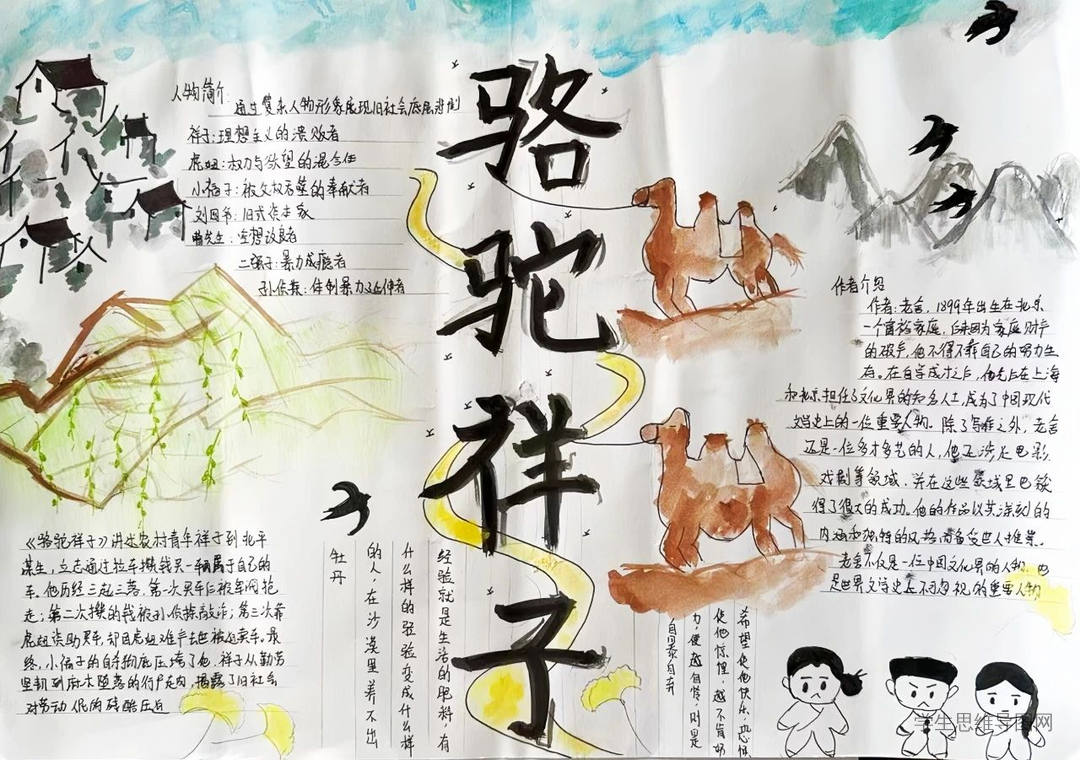 骆驼祥子
人物简介
通过复杂人物形象展现旧社会底层悲剧
祥子:理想主义的溃败者
虎妞:权力与欲望的混合体
小福子:被父权吞噬的奉献者
刘四爷:旧式资本家
曹先生:空想改良者
二强子:暴力成瘾者
孙侦探:体制暴力延伸者
作者介绍
作者:老舍,1899年出生在北京
一个贫穷家庭,后来因为家庭财产
的破产,他不得不靠自己的努力生
存。在自学成才之后,他先后在上海
和北京担任文化界的知名人士,成为了中国现代
文学史上的一位重要人物。除了写作之外,老舍
还是一位多才多艺的人,他还涉足电影
戏剧等领域,并在这些领域里也取
得了很大的成功。他的作品以其深刻的
内涵和独特的风格,备受世人推崇。
老舍不仅是一位中国文化界的人物,也
是世界文学史上不可忽视的重要人物
《骆驼祥子》讲述农村青年祥子到北平
谋生,立志通过拉车攒钱买一辆属于自己的
车。他历经三起三落,第一次买车后被军阀抢
走;第二次攒的钱被孙侦探敲诈;第三次靠
虎妞资助买车,却因虎妞难产去世被迫卖车。最
终,小福子的自杀彻底压垮了他,祥子从勤劳
坚韧到麻木堕落的行尸走肉,揭露了旧社会
对劳动人民的残酷压迫
经验就是生活的肥料,有
什么样的经验变成什么样
的人,在沙漠里养不出
牡丹
希望使他快乐,恐惧
使他惊惶,越不肯努
力,便越自怜,则是
自暴自弃
学生思维导图网